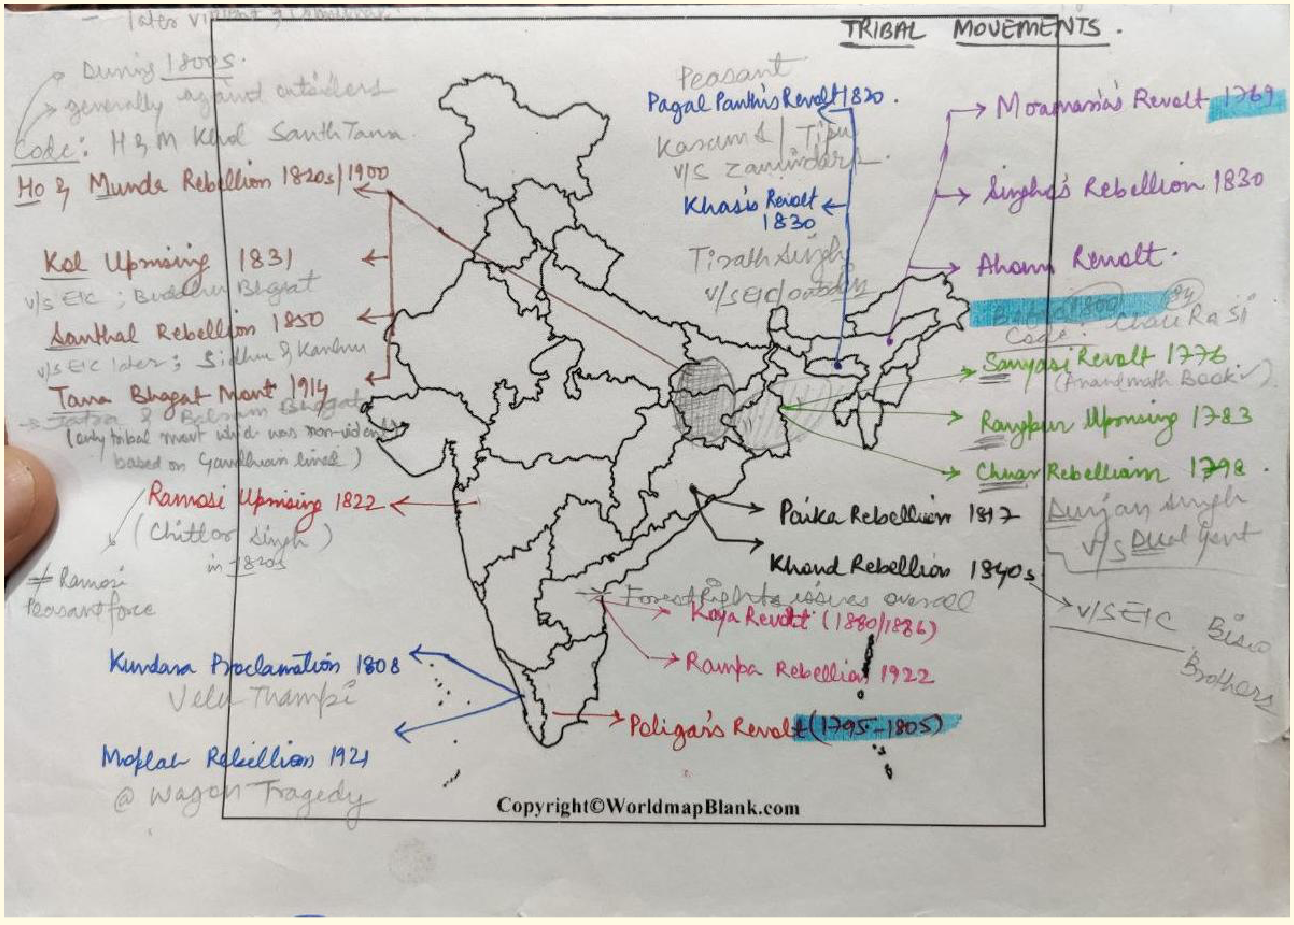 TRIBAL MOVEMENTS.
During 1800s.
generally against outsiders
Code: H & M Khol SanthTana
Ho & Munda Rebellion 1820s/1900
Kol Uprising 1831
v/s EIC ; Buddhu Bhagat
Santhal Rebellion 1850
v/s EIC later ; Sidhu & Kanhu
Tana Bhagat Mont 1914
Jatra & Balram Bhagat
(only tribal mont which was non-violent
based on Gandhian lines)
Ramosi Uprising 1822
(Chittor Singh)
in 1820s
≠ Ramosi
Peasant force
Kundara Proclamation 1808
Velu Thampi
Moplah Rebellion 1921
@ Wagon Tragedy
Peasant
Pagal Panthis Revolt 1820.
Karam & / Tipu
v/s Zamindars.
Khasis Revolt
1830
Tirath Singh
v/s EIC
Moamaria's Revolt 1769
Singhpo's Rebellion 1830
Ahom Revolt.
1800
Code: ChuRaSi
Sanyasi Revolt 1776
(Anandmath Book ✓)
Rangpur Uprising 1783
Chuar Rebellion 1798.
Durjan Singh
v/s Dual Govt
Paika Rebellion 1817
Khond Rebellion 1840s
v/s EIC Bisoi
Brothers
Forest Rights issues overall
Koya Revolt (1880/1886)
Rampa Rebellion 1922
Poligar's Revolt (1795-1805)
Copyright©WorldmapBlank.com